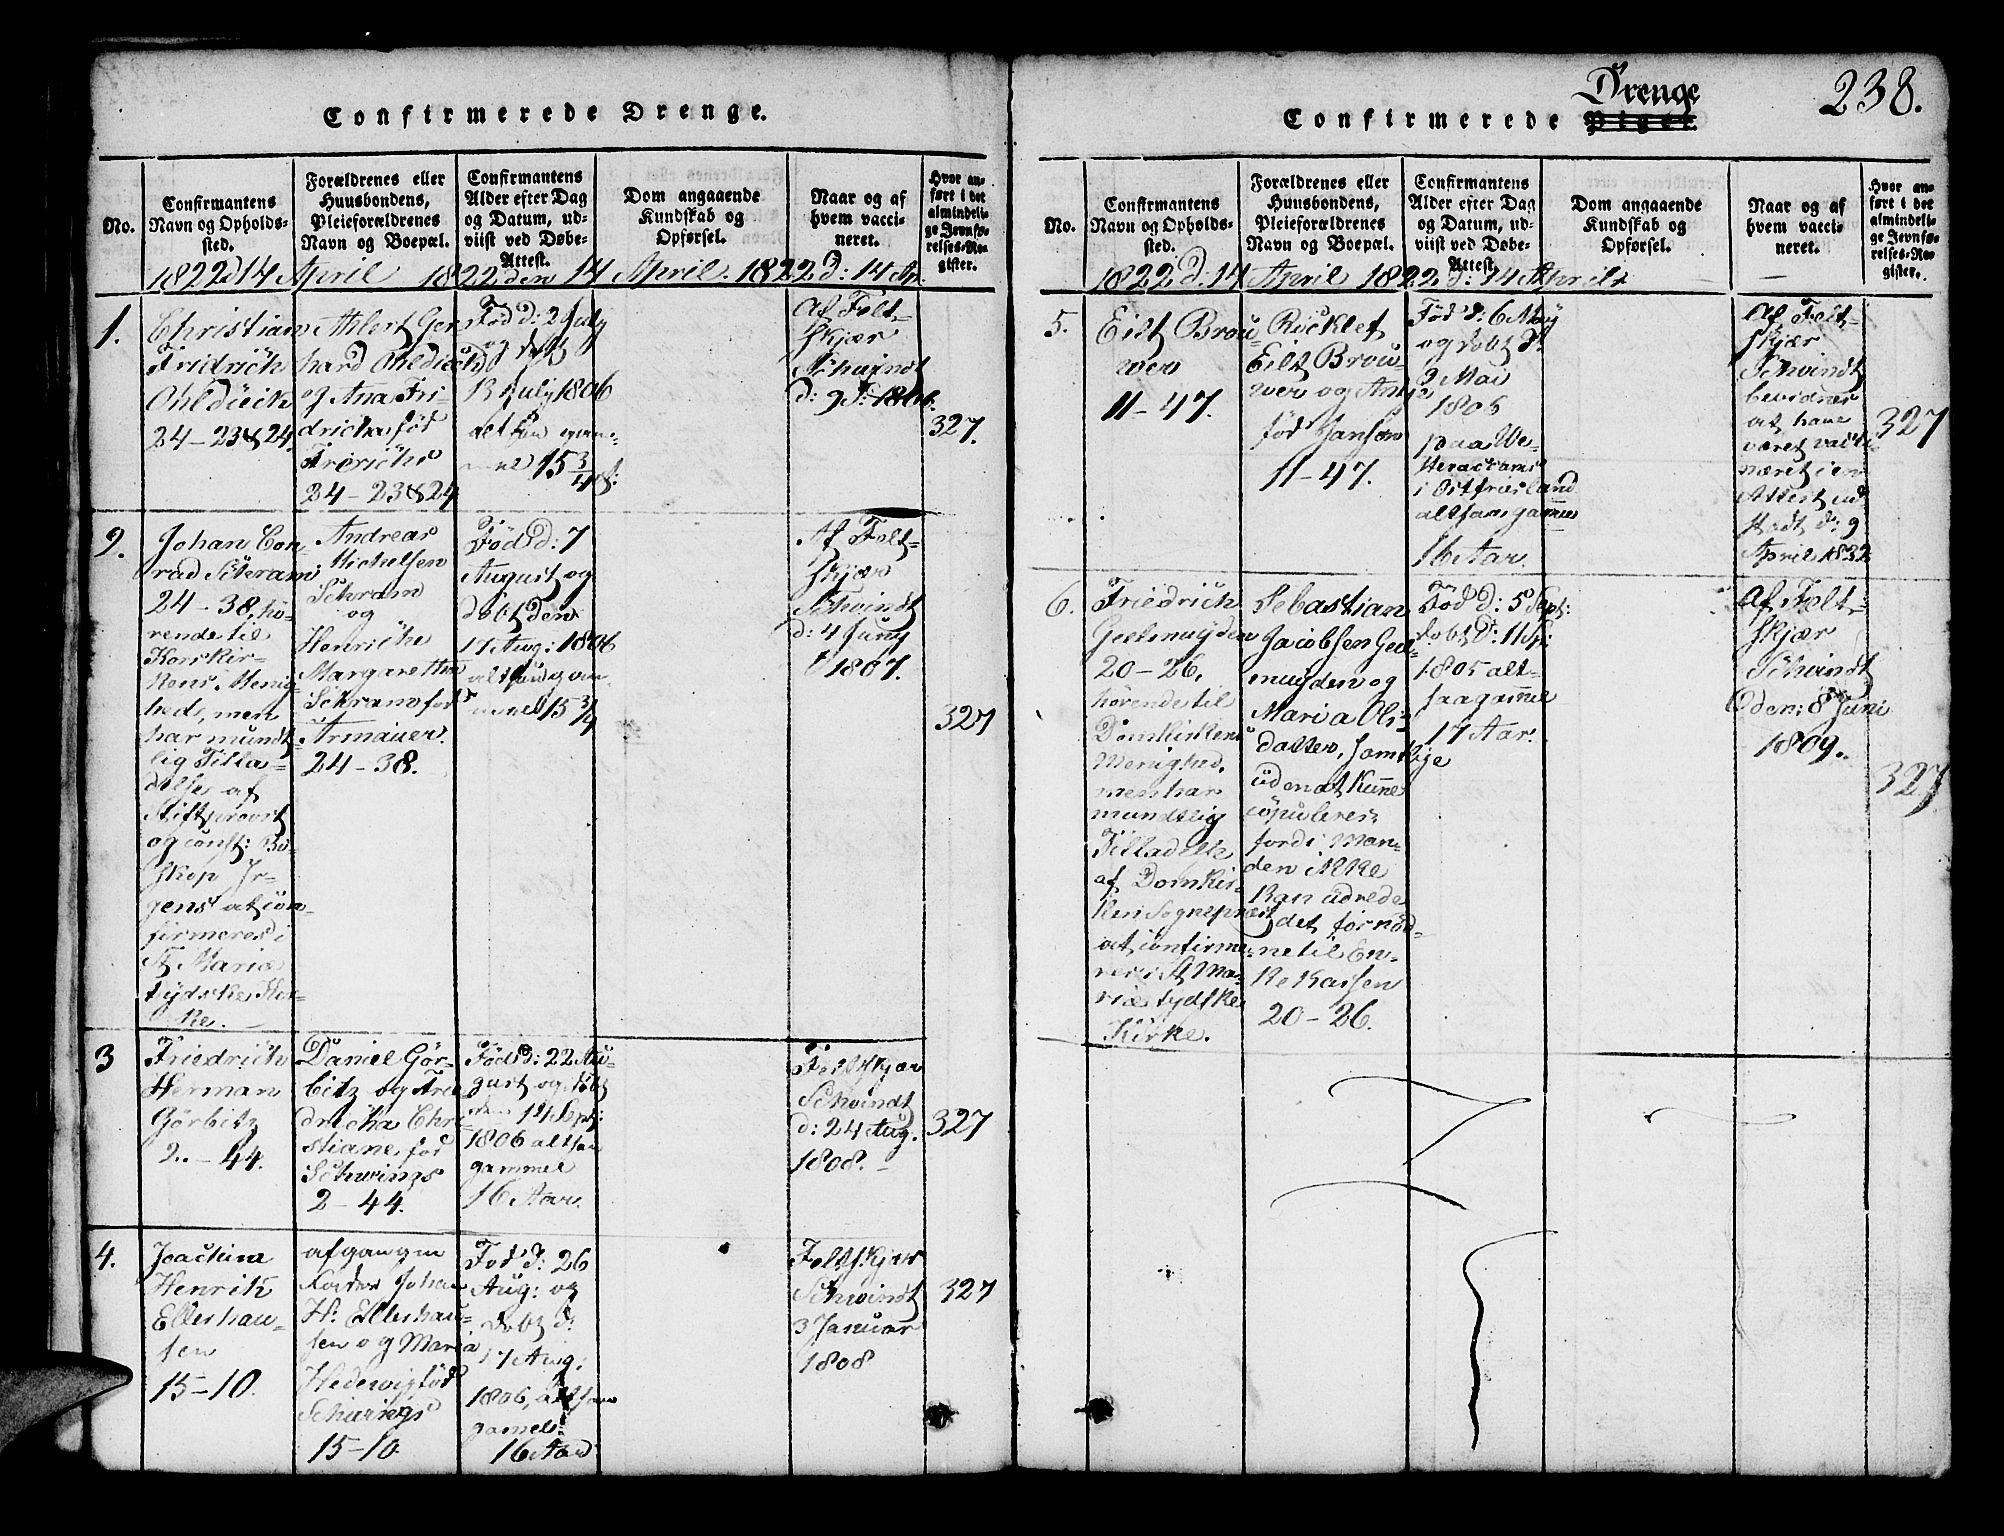 Confirmerede Drenge.
No.
Confirmantens
Navn og Opholds-
sted.
Forældrenes eller
Huusbondens,
Pleieforældrenes
Navn og Boepæl.
Confirmantens
Alder efter Dag
og Datum, ud-
viist ved Døbe-
Attest.
Dom angaaende
Kundskab og
Opførsel.
Naar og af
hvem vacci-
neret.
Hvor an-
ført i det
almindeli-
ge Jevnfø-
relses-Re-
gister.
1822 d 14 April 1822 den 14 April. 1822 d: 14 Ap.
1.
Christian
Fridrich
Ohldieck
24-23&24.
Ahlert Ger-
hard Ohldieck
og Ana Fri-
dricha fød
Frerichs
24-23&24
Fød d: 2 July
og døbt
13 July 1806
altsaa gam-
mel 15 3/4
Af Felt-
skjær
Schvindt
1806.
327.
2.
Johan Con-
rad Schram
24-38, hø-
rende til
Korskir-
kens Menig-
hed, men
har mundt-
lig Tilla-
delse af
Stiftsprovst
og const: Bi-
skop Ir-
gens at con-
firmeres i
St Mariæ
tydske Kir-
ke.
Andreas
Michelsen
Schram
og
Henriche
Margaretha
Schram fød
Armauer.
24-38.
Fød d: 7
August og
døbt den
17 Aug: 1806
altsaa gam-
mel 15 3/4
Af Felt-
skjær
Schvindt
d: 4 Juny
1807.
327
3
Friedrich
Herman
Görbitz
2.-44.
Daniel Gör-
bitz og Frie-
dricha Chri-
stiane fød
Schwings
2-44.
Fød d: 22 Au-
gust og døbt
den 14 Sept:
1806 altsaa
gammel
16 Aar.
Feltskjær
Schvindt
d: 24 Aug.
1808.
327
4.
Joachim
Henrik
Elleshau-
sen
15-10.
afgangen
Johan
H: Elleshau-
sen og Maria
Hedewig fød
Schwings
15-10.
Fød d: 26
Aug: og
døbt d:
17 Aug:
1806, altsaa
gamel
16 Aar
Feltskjær
Schvindt
3 Januar
1808
327
238.
Drenge
Confirmerede Piger.
No.
Confirmantens
Navn og Opholds-
sted.
Forældrenes eller
Huusbondens,
Pleieforældrenes
Navn og Boepæl.
Confirmantens
Alder efter Dag
og Datum, ud-
viist ved Døbe-
Attest.
Dom angaaende
Kundskab og
Opførsel.
Naar og af
hvem vacci-
neret.
Hvor an-
ført i det
almindeli-
ge Jevnfø-
relses-Re-
gister.
1822 d: 14 April 1822 d: 14 April
5.
Eilt Brou-
wer
11-47.
Eilt Brou-
wer og Antje
fød Jansen
11-47.
Fød d: 6 May
og døbt d:
9 Mai
1806
paa We-
i Ostfriesland
altsaa gammel
16 Aar.
Af Felt-
skjær
Schvindt
bevidnes
at have
været vacci-
neret i en
Attest ud-
stedt d: 9
April
327
6.
Friedrich
Geelmuyden
20-26.
hørende til
Domkirkens
Menighed,
men har
mundtlig
Tilladelse
af Domkir-
kens Sognepræst
at confirme-
res i St Ma-
riæ tydske
Kirke.
Sebastian
Jacobsen Geel-
muyden og
Maria Ols-
datter, samtlige
uden at kunne
copuleres
fordi Man-
den ikke
kan udrede
det fornød-
ne til En-
kekassen
20-26.
Fød d: 5 Sept:
døbt d: 11 Sp:
1805 alt-
saa gammel
17 Aar.
Af Felt-
skjær
Schvindt
den: 8 Juni
1809.
327